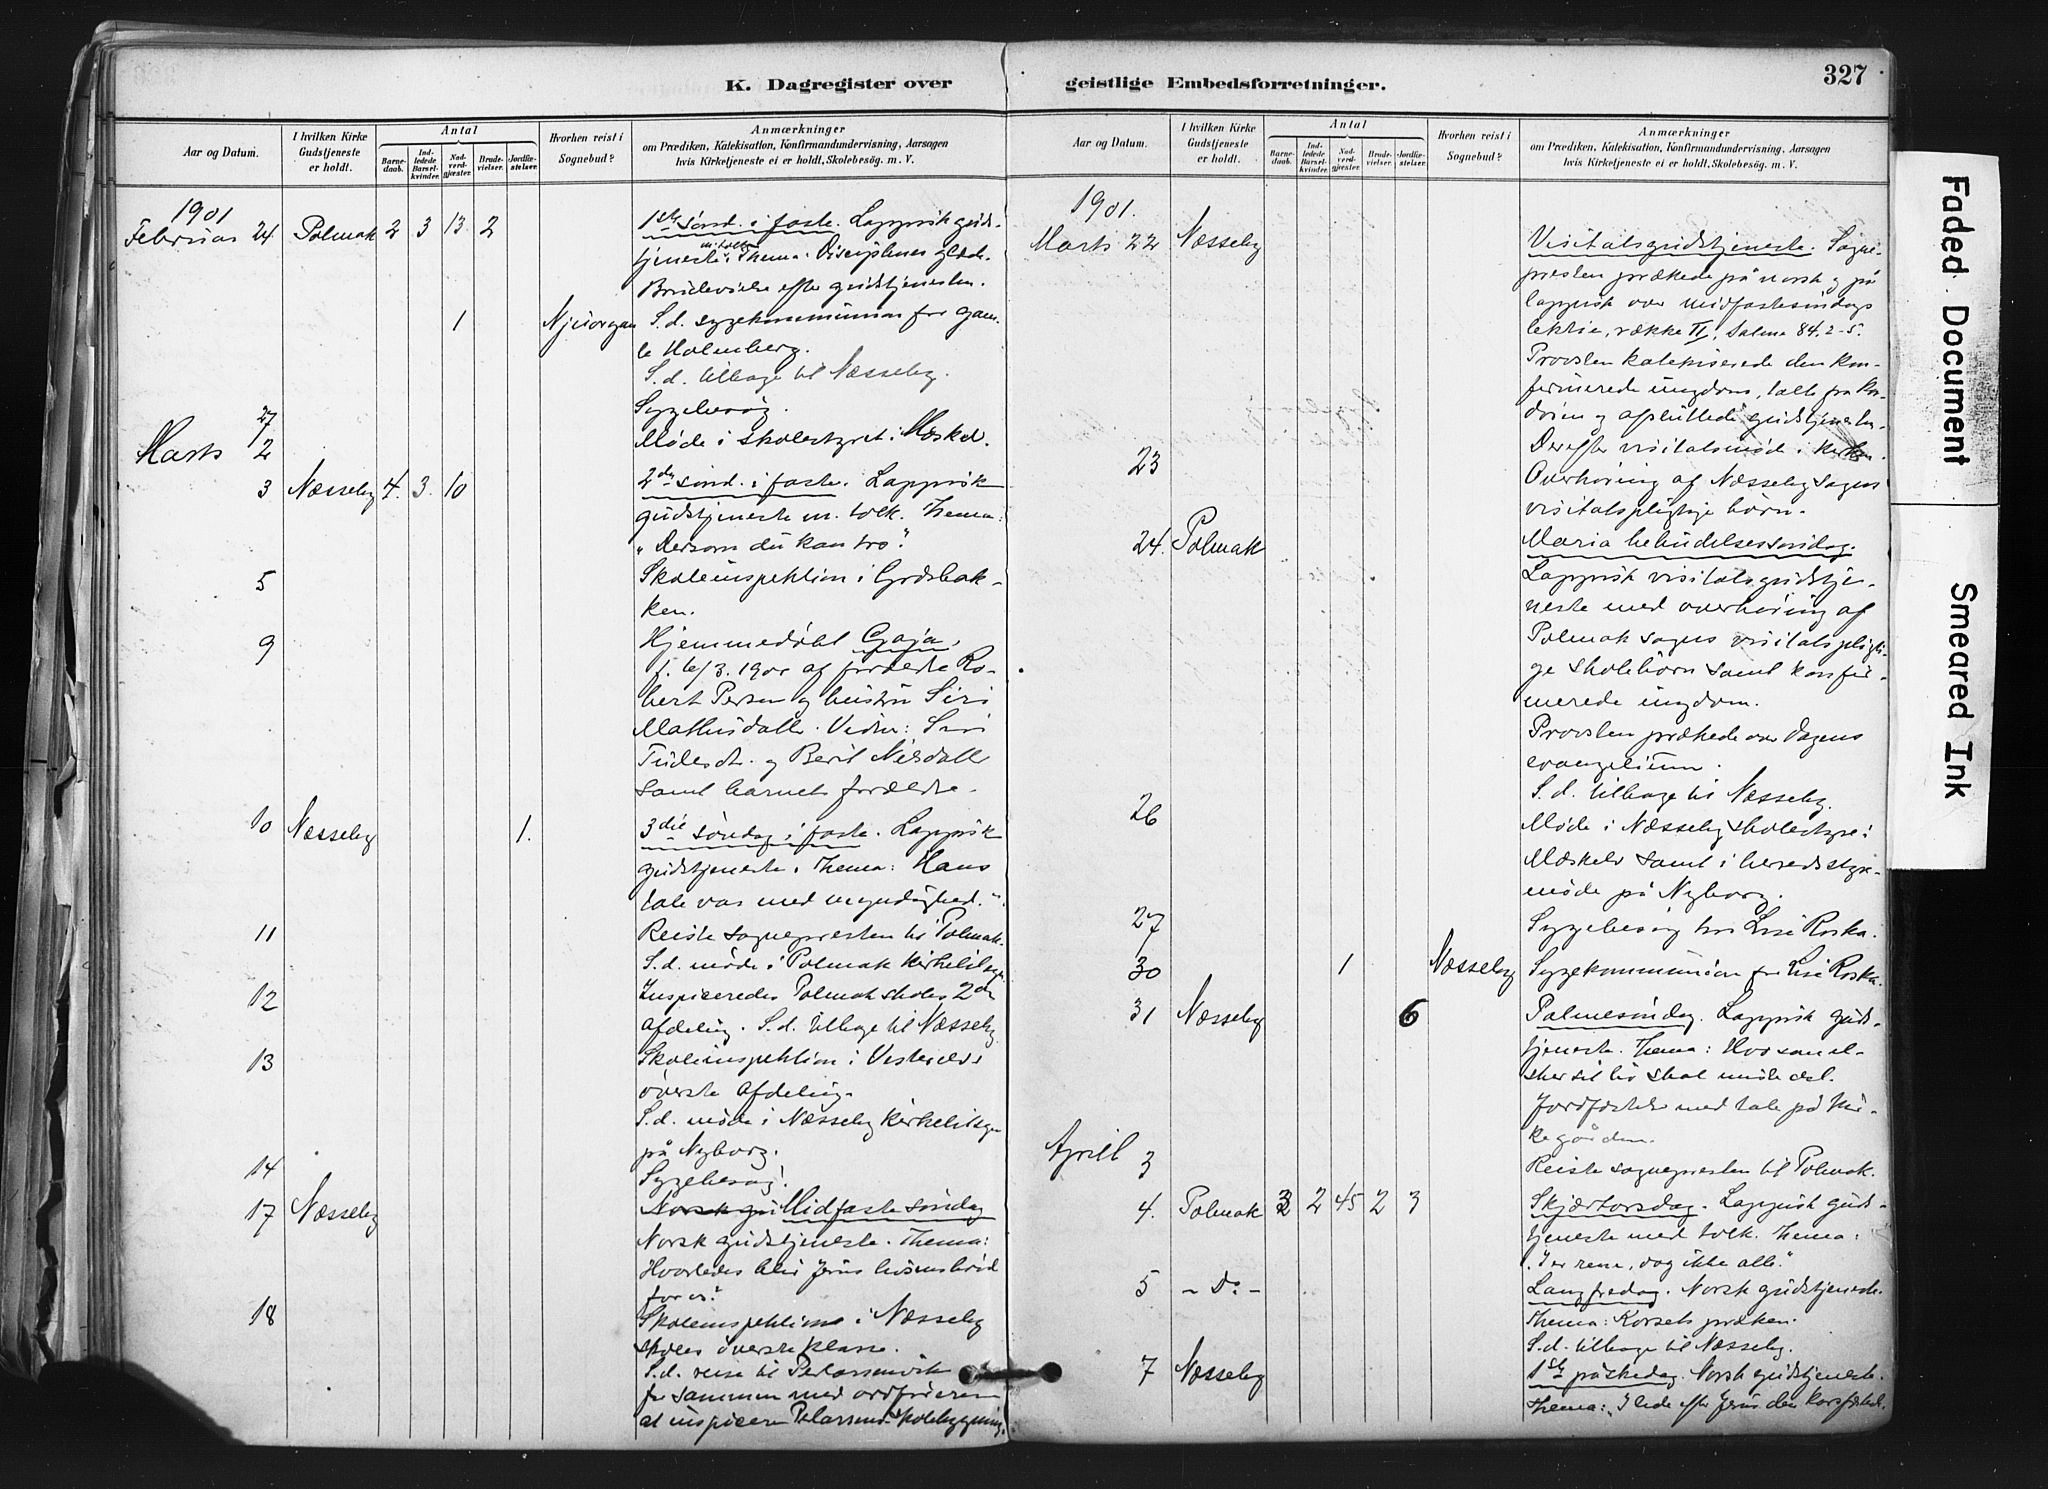 K. Dagregister over
Aar og Datum.
I hvilken Kirke Gudstjeneste er holdt.
Antal
Barne-daab.
Ind-ledede Barsel-kvinder.
Nad-verd-gjæster.
Brude-vielser.
Jordfæ-stelser.
Hvorhen reist i Sognebud?
Anmærkninger
om Prædiken, Katekisation, Konfirmandundervisning, Aarsagen
hvis Kirketjeneste ei er holdt, Skolebesög. m. V.
1901
Februar 24 Polmak 2 3 13 2 1ste sönd. i faste. Lappisk guds-
tjeneste m. tolk. Thema: Disciplenes glæde.
Brudevielse efter gudstjenesten.
1 Njuorgan S. d. sygekommunion for gam-
le Holmberg.
S. d. tilbage til Næsseby.
27 Sygebesög.
Marts 2 Möde i skolestyret i Mæskel.
3 Næsseby 4. 3. 10 2den sönd. i faste. Lappisk
gudstjeneste m. tolk. Thema:
"Dersom du kan tro".
5 Skoleinspektion i Græsbak-
ken.
9 Hjemmedöbt Gaja,
f. 6/3. 1900 af forældre Ro-
bert Persen og hustru Siri
Mathisdatter. Vidner: Siri
Tudesdtr. og Berit Nilsdatter
samt barnets forældre.
10 Næsseby 1. 3die söndag i faste. Lappisk
gudstjeneste. Thema: Hans
tale var med myndighed."
11 Reiste sognepresten til Polmak.
S. d. möde i Polmak kirketilsyn
12 Inspiceredes Polmak skoles 2den
afdeling. S. d. tilbage til Næsseby
13 Skoleinspektion i Vesterelvs
överste afdeling.
S. d. möde i Næsseby kirketilsyn
på Nyborg.
14 Sygebesög.
17 Næsseby Norsk gu Midfastesöndag
Norsk gudstjeneste. Thema:
Hvorledes blir Jesus livsens bröd
for os?
18 Skoleinspektion i Næsseby
skoles överste klasse.
S. d. reise til Perlarsenvik
for sammen med ordföreren
at inspicere Pelarsenv. skolebygning.
geistlige Embedsforretninger.
327
Aar og Datum.
I hvilken Kirke Gudstjeneste er holdt.
Antal
Barne-daab.
Ind-ledede Barsel-kvinder.
Nad-verd-gjæster.
Brude-vielser.
Jordfæ-stelser.
Hvorhen reist i Sognebud?
Anmærkninger
om Prædiken, Katekisation, Konfirmandundervisning, Aarsagen
hvis Kirketjeneste ei er holdt, Skolebesög. m. V.
1901.
Marts 22 Næsseby Visitatsgudstjeneste. Sogne-
presten prækede på norsk og på
lappisk over midfastesöndags
lektie, række II, Salme 84. 2-5.
Provsten katekiserede den kon-
firmerede ungdom, talte fra kor-
dören og afsluttede gudstjenesten.
Derefter visitatsmöde i kirken.
23 Overhöring af Næsseby sogns
visitatspligtige börn.
24. Polmak Maria bebudelsessöndag.
Lappisk visitatsgudstje-
neste med overhöring af
Polmak sogns visitatspligti-
ge skolebörn samt konfir-
merede ungdom.
Provsten prækede over dagens
evangelium.
S. d. tilbage til Næsseby.
26 Möde i Næsseby skolestyre i
Mæskelv samt i herredsstyre-
möde på Nyborg.
27 Sygebesög hos Lise Roska.
30 1 Næsseby Sygekommunion for Lise Roska.
31 Næsseby 6 Palmesöndag. Lappisk guds-
tjeneste. Thema: Hvo som el-
sker sit liv skal miste det.
Jordfæstelse med tale på kir-
kegården.
April 3 Reiste sognepresten til Polmak.
4. Polmak 3 2 45 2 3 Skjærtorsdag. Lappisk guds-
tjeneste med tolk. Thema:
"I er rene, dog ikke alle".
5 - Do - Langfredag. Norsk gudstjeneste.
Thema: Korsets præken.
S. d. tilbage til Næsseby.
7 Næsseby 1ste påskedag. Norsk gudstjeneste.
Thema: "I lede efter Jesus den korsfæstede.
Faded Document
Smeared Ink